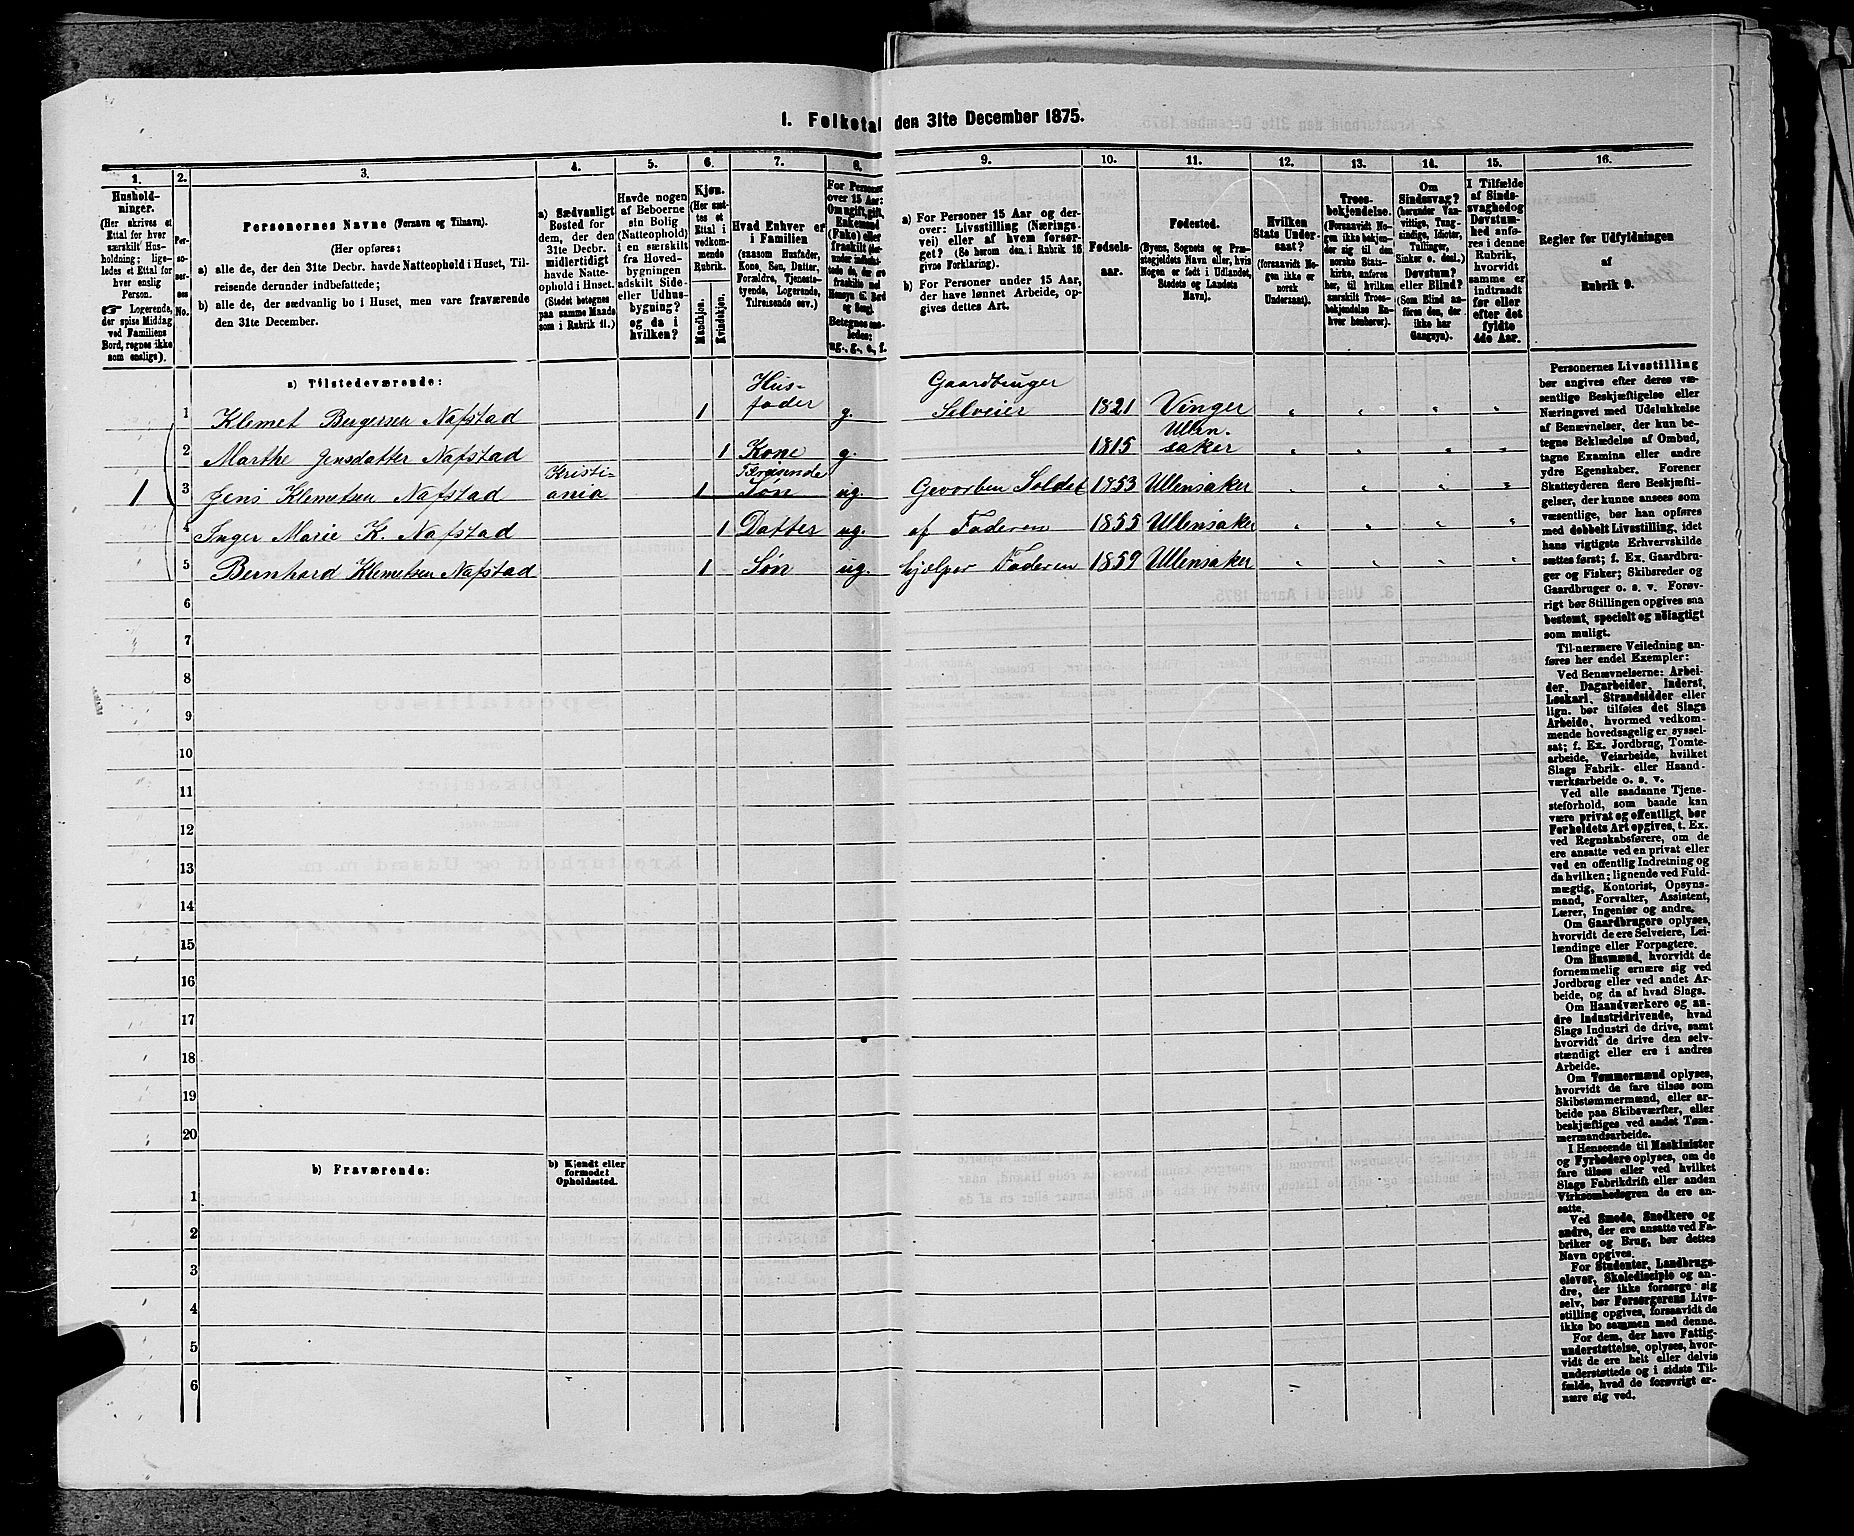 1. Folketal den 31te December 1875.
1.
2.
3.
4.
5.
6.
7.
8.
9.
10.
11.
12.
13.
14.
15.
16.
Hushold-
ninger.
(Her skrives et
Ettal for hver
særskilt Hus-
holdning; lige-
ledes et Ettal for
hver enslig
Person.
☞ Logerende,
der spise Middag
ved Familiens
Bord, regnes ikke
som enslige).
Per-
so-
ner-
nes
No.
Personernes Navne (Fornavn og Tilnavn).
(Her opføres:
a) alle de, der den 31te Decbr. havde Natteophold i Huset, Til-
reisende derunder indbefattede;
b) alle de, der sædvanlig bo i Huset, men vare fraværende
den 31te December.
a) Sædvanligt
Bosted for
dem, der den
31te Decbr.
midlertidigt
havde Natte-
ophold i Huset.
(Stedet betegnes
paa samme Maade
som i Rubrik 11.)
Havde nogen
af Beboerne
sin Bolig
(Natteophold)
i en særskilt
fra Hoved-
bygningen
adskilt Side-
eller Udhus-
bygning?
og da i
hvilken?
Kjøn.
(Her sæt-
tes et
Ettal i
vedkom-
mende
Rubrik.
Mandkjøn.
Kvindekjøn.
Hvad Enhver er
i Familien
(saasom Husfader,
Kone, Søn, Datter,
Forældre, Tjeneste-
tyende, Logerende,
Tilreisende osv.)
For Personer
over 15 Aar:
Om ugift, gift,
Enkemand
(Enke) eller
fraskilt der-
under indbefat-
tede de, der ere
fraskilte med
Hensyn t. Bord
og Seng).
Betegnes saa-
ledes:
ug., g., e., f.
a) For Personer 15 Aar og der-
over: Livsstilling (Nærings-
vei) eller af hvem forsør-
get? (Se herom den i Rubrik 16
givne Forklaring).
b) For Personer under 15 Aar,
der have lønnet Arbeide, op-
gives dettes Art.
Fødsels-
aar.
Fødested.
(Byens, Sognets og Præ-
stegjeldets Navn eller, hvis
Nogen er født i Udlandet,
Stedets og Landets
Navn).
Hvilken
Stats Under-
saat?
(forsaavidt No-
gen ikke er
norsk
Undersaat).
Troes-
bekjendelse.
(Forsaavidt No-
gen ikke bekjen-
der sig til den
norske Stats-
kirke, anføres
her, til hvilken
særskilt Troes-
bekjendelse En-
hver henhører).
Om
Sindssvag?
(herunder Van-
vittige, Tung-
sindige, Idioter,
Tullinger,
Sinker o. desl.)
Døvstum?
eller Blind?
(Som Blind an-
føres den, der
ikke har
Gangsyn).
I Tilfælde
af Sinds-
svaghed og
Døvstum-
hed anfø-
res i denne
Rubrik,
hvorvidt
samme er
indtraadt
før eller
efter det
fyldte
4de Aar.
Regler for Udfyldningen
af
Rubrik 9.
a) Tilstedeværende:
1 Klemet Bergersen Nafstad 1 Hus-fader g. Gaardbruger Selveier 1821 Vinger " " " "
2 Marthe Jensdatter Nafstad 1 Kone g. 1815 Ullen-saker " " " "
1 3 Jens Klemetsen Nafstad Kristi-ania 1 Søn ug. Gevorben Soldat 1853 Ullensaker " " " "
4 Inger Marie K. Nafstad 1 Datter ug. af Faderen 1855 Ullensaker " " " "
5 Bernhard Klemetsen Nafstad 1 Søn ug. hjælper Faderen 1859 Ullensaker " " " "
6
7
8
9
10
11
12
13
14
15
16
17
18
19
20
b) Fraværende:
b) Kjendt eller
formodet
Opholdssted.
1
2
3
4
5
6
Personernes Livsstilling
bør angives efter deres væ-
sentlige Beskjæftigelse eller
Næringsvei med Udelukkelse
af Benævnelser, der kun be-
tegne Beklædelse af Ombud,
tagne Examina eller andre
ydre Egenskaber. Forener
Skatteyderen flere Beskjæfti-
gelser, der kunne ansees som
væsentlige, bør han opføres
med dobbelt Livsstilling, idet
hans vigtigste Erhvervskilde
sættes først; f. Ex. Gaardbru-
ger og Fisker; Skibsreder og
Gaardbruger o. s. v. Forøv-
rigt bør Stillingen opgives saa
bestemt, specielt og nøiagtigt
som muligt.
Til nærmere Veiledning an-
føres her endel Exempler:
Ved Benævnelserne: Arbei-
der, Dagarbeider, Inderst,
Løskarl, Strandsidder eller
lign. bør tilføies det Slags
Arbeide, hvormed vedkom-
mende hovedsagelig er syssel-
sat; f. Ex. Jordbrug, Tomte-
arbeide, Veiarbeide, hvilket
Slags Fabrik- eller Haand-
værksarbeide o. s. v.
Ved alle saadanne Tjene-
steforhold, som baade kan
være privat og offentligt, bør
Forholdets Art opgives, t. Ex.
ved Regnskabsførere, om de
ere ansatte ved en privat eller
ved en offentlig Indretning og
da hvilken; lignende ved Fuld-
mægtig, Kontorist, Opsyns-
mand, Forvalter, Assistent,
Lærer, Ingeniør og andre.
Om Gaardbrugere oplyses,
hvorvidt de ere Selveiere, Lei-
lændinge eller Forpagtere.
Om Husmænd, hvorvidt de
fornemmelig ernære sig ved
Jordbrug eller ved andet Ar-
beide, og da af hvad Slags.
Om Haandværkere og an-
dre Industridrivende, hvad
Slags Industri de drive, samt
hvorvidt de drive den selv-
stændigt eller ere i andres
Arbeide.
Om Tømmermænd oplyses,
hvorvidt de fare tilsøs som
Skibstømmermænd, eller ar-
beide paa Skibsværfter, eller
beskjæftiges ved andet Tøm-
mermandsarbeide.
I Henseende til Maskinister
og Fyrbødere oplyses, om de
fare tilsøs eller ved hvilket
Slags Fabrikdrift eller anden
Virksomhedsgren de ere an-
satte.
Ved Smede, Snedkere og
andre, der ere ansatte ved Fa-
briker og Brug, bør dettes
Navn opgives.
For Studenter, Landbrugs-
elever, Skoledisciple og an-
dre, der ikke forsørge sig
selv, bør Forsørgerens Livs-
stilling opgives, forsaavidt de
ikke bo sammen med denne.
For dem, der have Fattig-
understøttelse, oplyses, hvor-
vidt de ere helt eller delvis
understøttede og i sidste Til-
fælde, hvad de forøvrigt er-
nære sig ved.